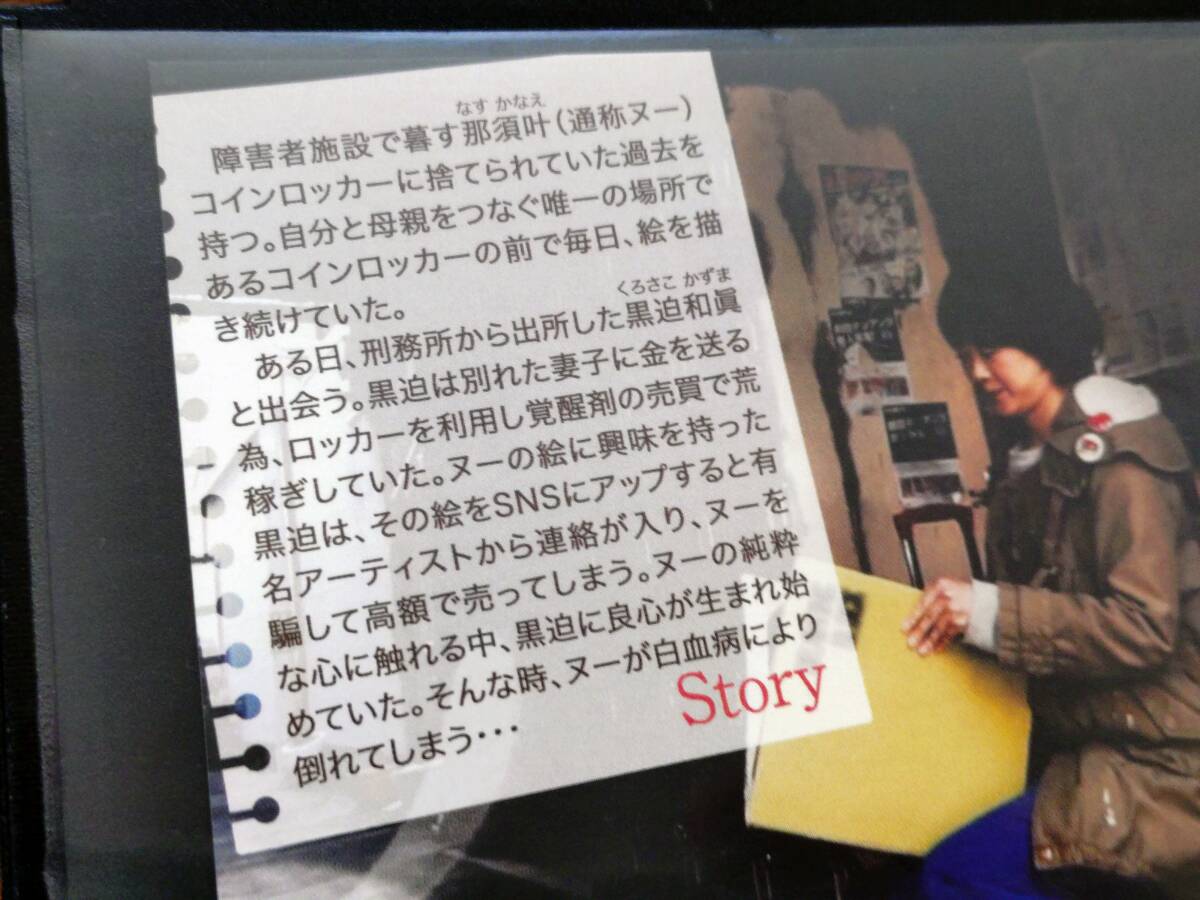 なす かなえ
障害者施設で暮す那須叶（通称ヌー）
コインロッカーに捨てられていた過去を
持つ。自分と母親をつなぐ唯一の場所で
あるコインロッカーの前で毎日、絵を描
き続けていた。
くろさこ かずま
ある日、刑務所から出所した黒迫和眞
と出会う。黒迫は別れた妻子に金を送る
為、ロッカーを利用し覚醒剤の売買で荒
稼ぎしていた。ヌーの絵に興味を持った
黒迫は、その絵をSNSにアップすると有
名アーティストから連絡が入り、ヌーを
騙して高額で売ってしまう。ヌーの純粋
な心に触れる中、黒迫に良心が生まれ始
めていた。そんな時、ヌーが白血病により
倒れてしまう・・・
Story